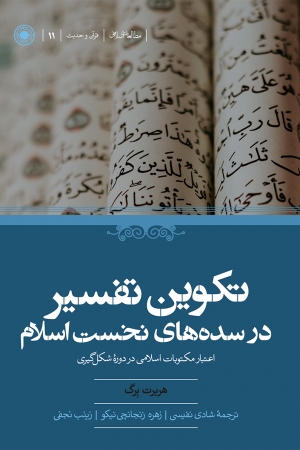 قرآن و حدیث | ۱۱
أَمْرًا فَإِنَّمَا يَقُو
هَٰذَا صِرَٰطٌ
لِّلَّذِينَ كَفَرُ
يَأْتُونَنَا
قَالَ رَبِّ
ثَلَٰثَ
فَأَوْحَىٰ
تکوین تفسیر
در سده‌های نخست اسلام
اعتبار مکتوبات اسلامی در دورهٔ شکل‌گیری
هربرت برگ
ترجمهٔ شادی نفیسی | زهره زنجانچی‌نیکو | زینب نجفی